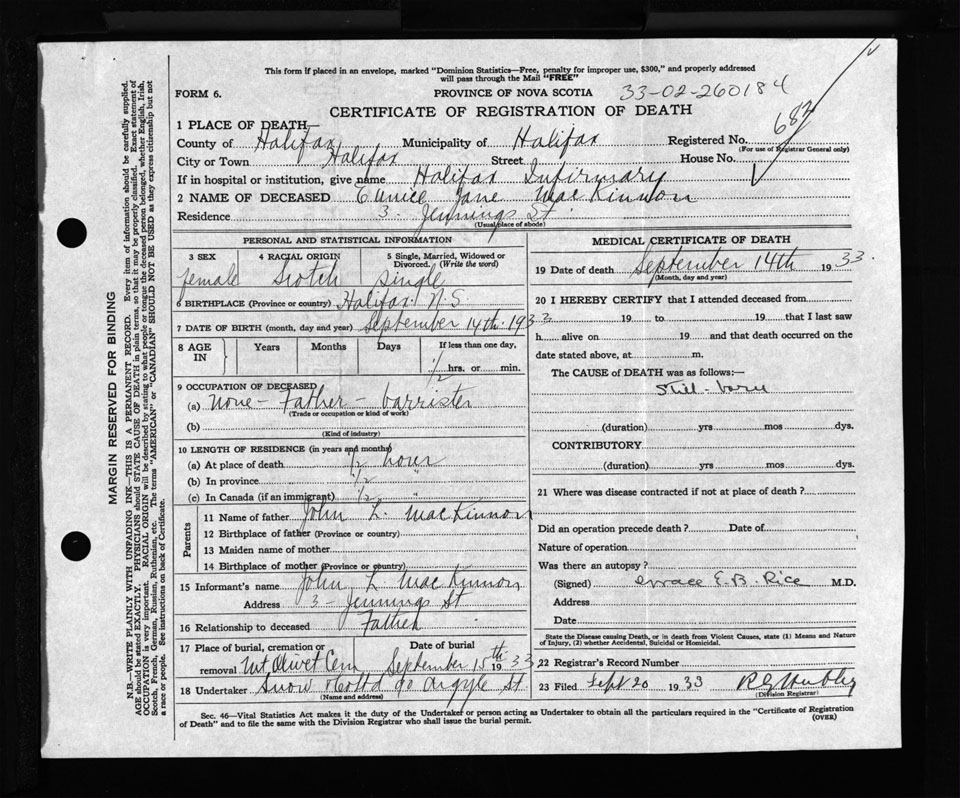 This form if placed in an envelope, marked "Dominion Statistics—Free, penalty for improper use, $300," and properly addressed
will pass through the Mail "FREE"
FORM 6. PROVINCE OF NOVA SCOTIA 33-02-260184
CERTIFICATE OF REGISTRATION OF DEATH
1 PLACE OF DEATH—
County of Halifax Municipality of Halifax Registered No. 682
(For use of Registrar General only)
City or Town Halifax Street House No.
If in hospital or institution, give name Halifax Infirmary
2 NAME OF DECEASED Eunice Jane MacKinnon
Residence 3 - Jennings St
(Usual place of abode)
PERSONAL AND STATISTICAL INFORMATION
3 SEX 4 RACIAL ORIGIN 5 Single, Married, Widowed or Divorced. (Write the word)
female Scotch single
6 BIRTHPLACE (Province or country) Halifax N.S.
7 DATE OF BIRTH (month, day and year) September 14th. 1933
8 AGE IN Years Months Days If less than one day,
1/2 hrs. or min.
9 OCCUPATION OF DECEASED
(a) none - Father - barrister
(Trade or occupation or kind of work)
(b)
(Kind of industry)
10 LENGTH OF RESIDENCE (in years and months)
(a) At place of death 1/2 hour
(b) In province 1/2
(c) In Canada (if an immigrant) 1/2
Parents
11 Name of father John L. MacKinnon
12 Birthplace of father (Province or country)
13 Maiden name of mother
14 Birthplace of mother (Province or country)
15 Informant's name John L MacKinnon
Address 3 - Jennings St
16 Relationship to deceased Father
17 Place of burial, cremation or removal Date of burial
Mt Olivet Cem September 15th 1933
18 Undertaker Snow & Co Ltd 90 Argyle St
(Name and address)
MEDICAL CERTIFICATE OF DEATH
19 Date of death September 14th 1933.
(Month, day and year)
20 I HEREBY CERTIFY that I attended deceased from
19 to 19 that I last saw
h alive on 19 and that death occurred on the
date stated above, at m.
The CAUSE of DEATH was as follows:—
still-born
(duration) yrs mos dys.
CONTRIBUTORY
(duration) yrs mos dys.
21 Where was disease contracted if not at place of death?
Did an operation precede death? Date of
Nature of operation
Was there an autopsy?
(Signed) Grace E.B. Rice M.D.
Address
Date
State the Disease causing Death, or in death from Violent Causes, state (1) Means and Nature
of Injury, (2) whether Accidental, Suicidal or Homicidal.
22 Registrar's Record Number
23 Filed Sept 20 1933
(Division Registrar)
Sec. 46—Vital Statistics Act makes it the duty of the Undertaker or person acting as Undertaker to obtain all the particulars required in the "Certificate of Registration
of Death" and to file the same with the Division Registrar who shall issue the burial permit.
(OVER)
MARGIN RESERVED FOR BINDING
N.B.—WRITE PLAINLY WITH UNFADING INK—THIS IS A PERMANENT RECORD. Every item of information should be carefully supplied.
AGE should be stated EXACTLY. PHYSICIANS should STATE CAUSE OF DEATH in plain terms, so that it may be properly classified. Exact statement of
OCCUPATION is very important. RACIAL ORIGIN will be described by stating to what people or tongue the deceased person belonged, whether English, Irish,
Scotch, French, German, Russian, Ruthenian, etc. The terms "AMERICAN" or "CANADIAN" SHOULD NOT BE USED as they express citizenship but not
a race or people. See instructions on back of Certificate.